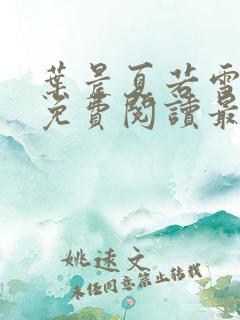 葉晨夏若雪
免費閱讀最
姚速文
未任同意禁止转载